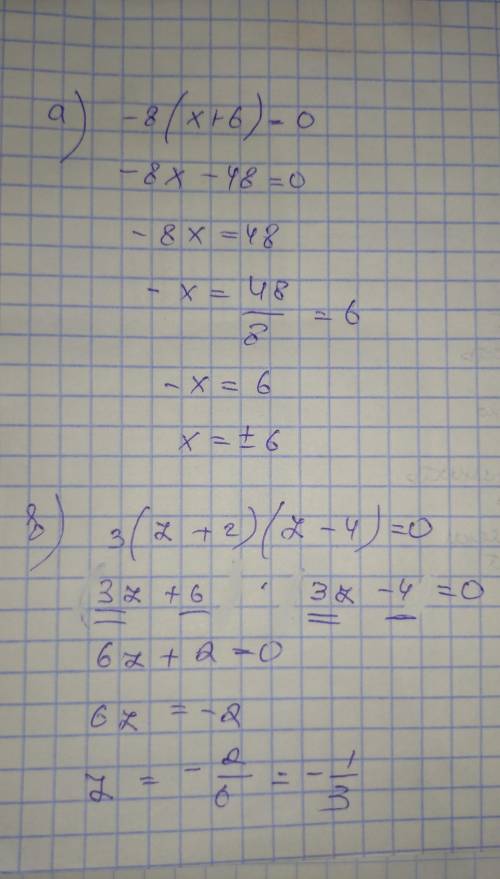 а) -8(x+6)=0
-8x -48=0
-8x =48
-x = 48/8 = 6
-x = 6
x = ±6
в) 3(z +2)(z -4)=0
3z +6 · 3z -4 =0
6z + 2 =0
6z = -2
z = -2/6 = -1/3